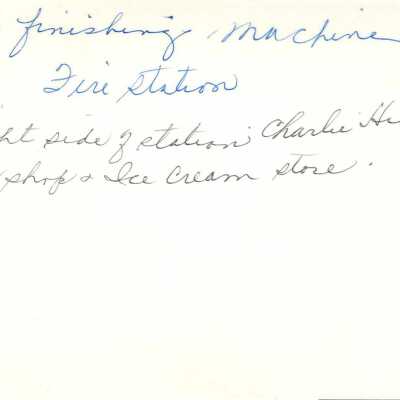 finishing Machine
Fire Station
ht side of station Charlie Hu
shop & Ice Cream store.